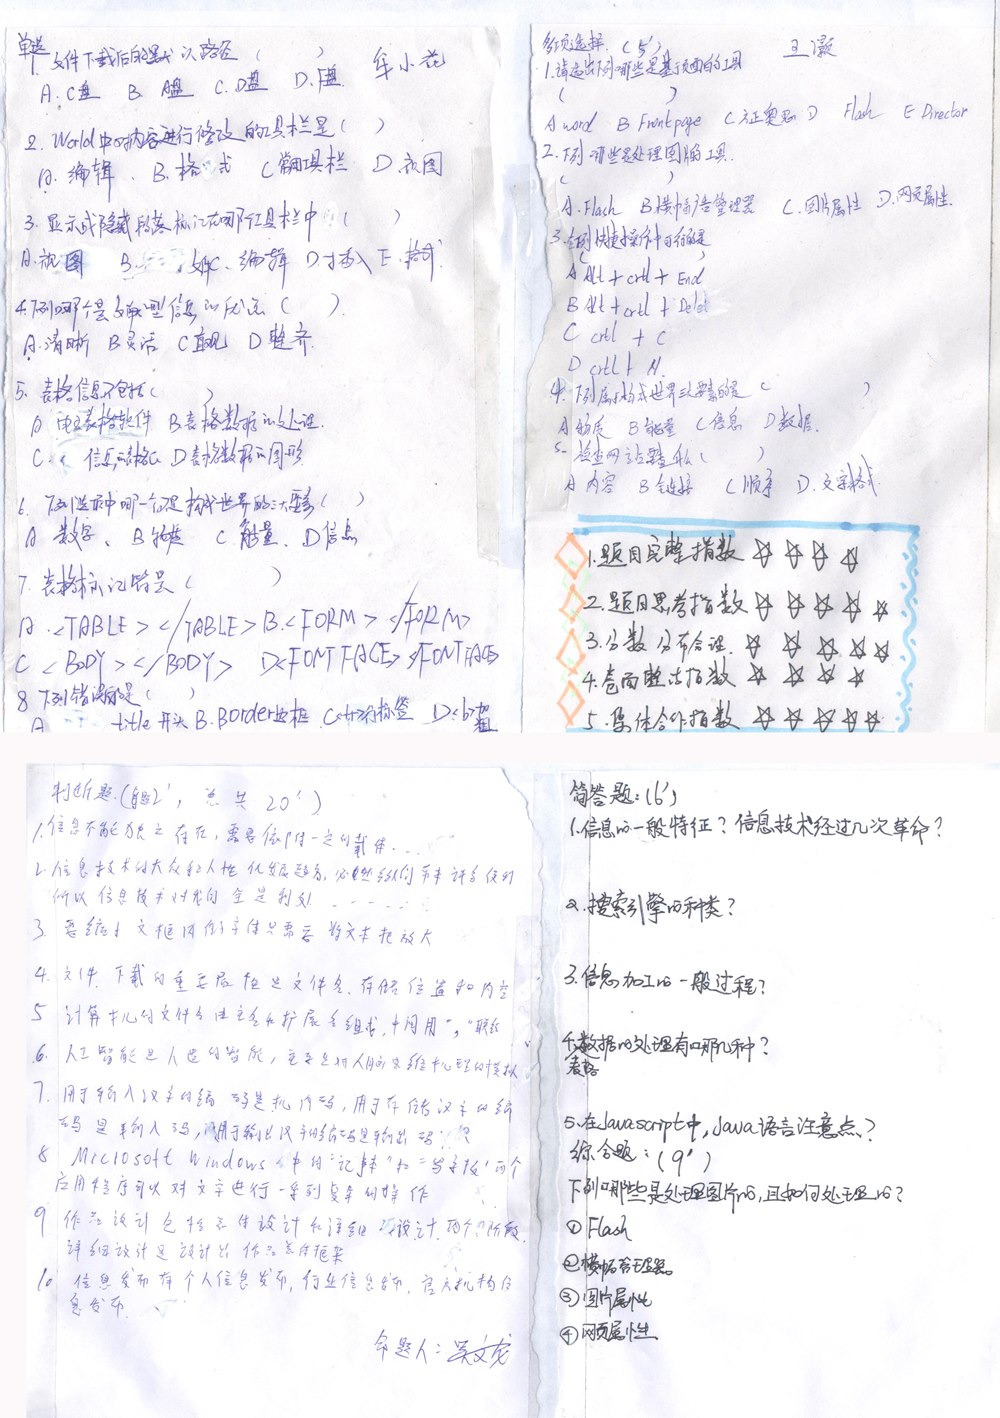 单选
1. 文件下载后的默认路径 ( )
牟小花
A. C盘 B. A盘 C. D盘 D. F盘
2. World中对内容进行修改的工具栏是 ( )
A. 编辑 B. 格式 C 常用工具栏 D. 视图
3. 显示或隐藏段落标记在哪个工具栏中 ( )
A. 视图 B. 文件 C. 编辑 D. 插入 E. 格式
4. 下列哪个是 型信息的优点 ( )
A. 清晰 B 灵活 C 直观 D 整齐.
5. 表格信息不包括 ( )
A 电子表格软件 B 表格数据的处理.
C 信息的表格化 D 表格数据的图形
6. 下列选项中哪一个不是构成世界的三大要素 ( )
A 数字、 B 物质 C. 能量、 D 信息
7. 表格标记符是 ( )
A. <TABLE> </TABLE> B. <FORM> </FORM>
C <BODY> </BODY> D <FONT FACE> </FONT FACE>
8 下列错误的是 ( )
A title 开头 B. Border边框 C <hr>行标签 D <b>加粗
多项选择. (5')
王灏
1. 请选出下列哪些是基于页面的工具
( )
A word B Frontpage C 方正奥思 D Flash E Director
2. 下列哪些是处理图片的工具.
( )
A. Flash B 横幅广告管理器 C. 图片属性 D. 网页属性.
3. 下列快捷操作中可行的是
( )
A Alt + crtl + End
B Alt + crtl + Delet
C crtl + C
D crtl + N.
4. 下列属于构成世界三大要素的是 ( )
A 物质 B 能量 C 信息 D 数据.
5. 检查网站要查什么 ( )
A 内容 B 链接 C 顺序 D. 文字格式
1. 题目完整指数 ☆ ☆ ☆ ☆
2. 题目思考指数 ☆ ☆ ☆ ☆ ☆
3. 分数分布合理. ☆ ☆ ☆ ☆ ☆
4. 卷面整洁指数 ☆ ☆ ☆ ☆
5. 集体合作指数 ☆ ☆ ☆ ☆ ☆
判断题. (每题2', 总共20')
1. 信息不能独立存在, 需要依附一定的载体...
2. 信息技术的大众和人性化发展趋势, 必然
所以信息技术对我们全是利处 ......
3. 要缩小文框内的字体只需要将文本框放大
4. 文件下载的重要属性是文件名、存储位置和内容
5 计算机的文件名由主名和扩展名组成, 中间用"."联结
6. 人工智能是人造的智能, 主要是对人的思维机理的模拟
7. 用于输入汉字的编码是机内码, 用于存储汉字的编
码是输入码, 用于输出汉字的编码是输出码
8 Microsoft Windows 中的"记事本"和"写字板"两个
应用程序可以对文字进行一系列复杂的操作
9 作品设计包括总体设计和详细设计两个阶段,
详细设计是设计出作品总体框架
10 信息发布有个人信息发布, 行业信息发布, 官方机构信
息发布.
命题人: 吴文龙
简答题: (6')
1. 信息的一般特征? 信息技术经过几次革命?
2. 搜索引擎的种类?
3. 信息加工的一般过程?
4. 数据的处理有哪几种?
表格
5. 在Javascript中, Java语言注意点?
综合题: (9')
下列哪些是处理图片的, 且如何处理的?
① Flash
② 横幅广告管理器
③ 图片属性
④ 网页属性